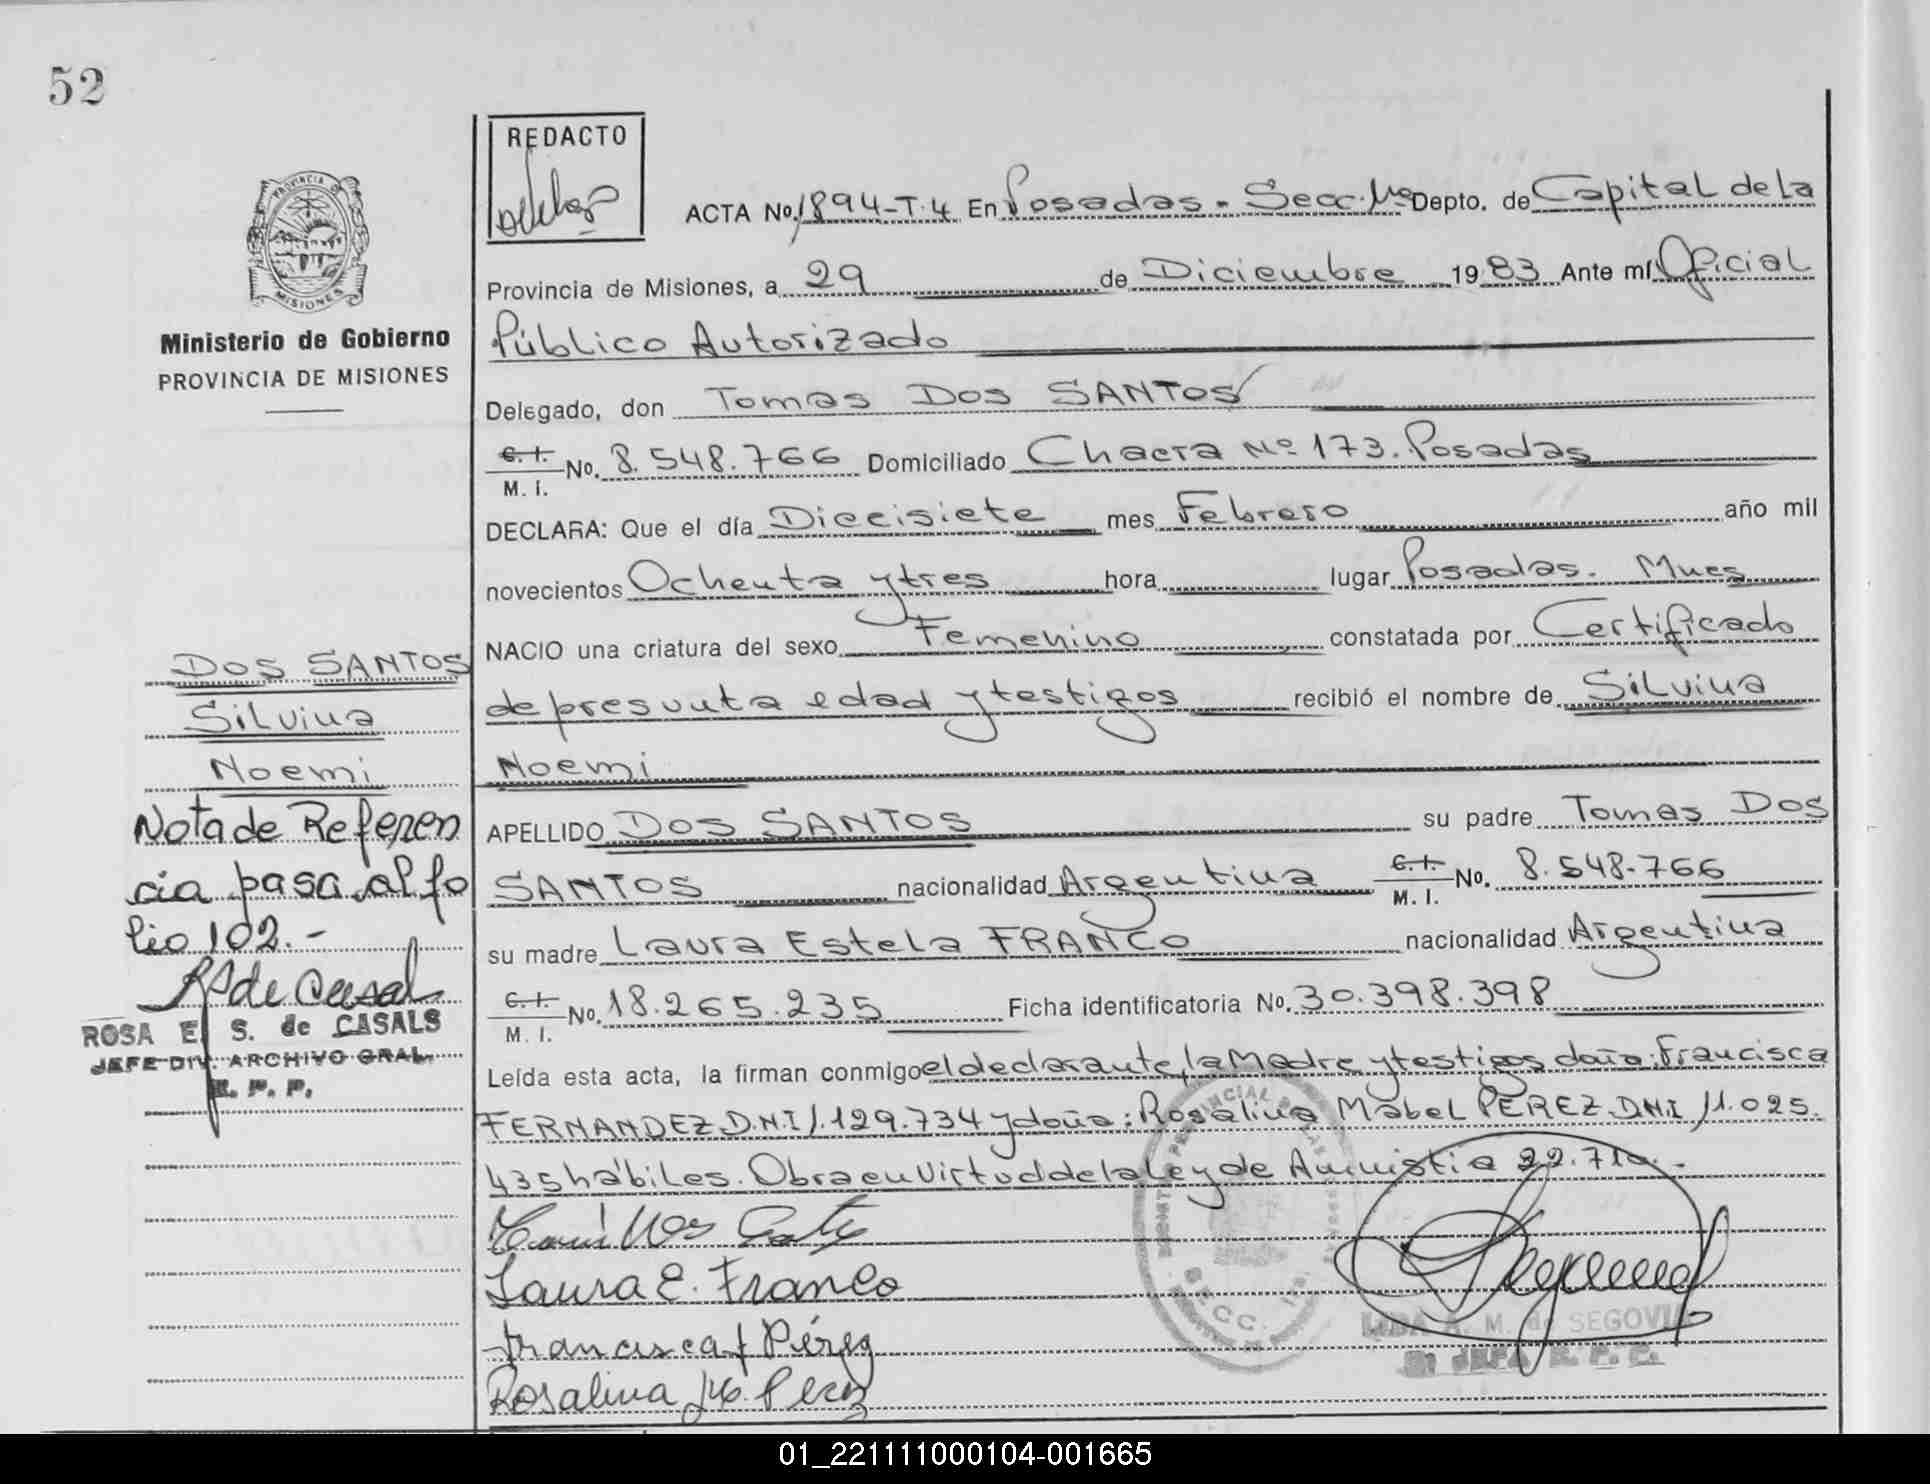 52
REDACTO
PROVINCIA DE
MISIONES
Ministerio de Gobierno
PROVINCIA DE MISIONES
ACTA No. 1894-T.4 En Posadas - Secc. 1ra Depto. de Capital de la
Provincia de Misiones, a 29 de Diciembre 1983 Ante mí Oficial
Público Autorizado
Delegado, don Tomas Dos SANTOS
C. I.
M. I. No. 8.548.766 Domiciliado Chacra Nº 173. Posadas
DECLARA: Que el día Diecisiete mes Febrero año mil
novecientos Ochenta y tres hora lugar Posadas. Mnes
NACIO una criatura del sexo Femenino constatada por Certificado
de presunta edad y testigos recibió el nombre de Silvina
Noemi
APELLIDO DOS SANTOS su padre Tomas Dos
SANTOS nacionalidad Argentina C. I.
M. I. No. 8.548.766
su madre Laura Estela FRANCO nacionalidad Argentina
C. I.
M. I. No. 18.265.235 Ficha identificatoria No. 30.398.398
Leída esta acta, la firman conmigo el declarante, la Madre y testigos doña: Francisca
FERNANDEZ D.N.I 1.129.734 y doña: Rosalina Mabel PEREZ D.N.I 11.025.
435 hábiles. Obra en Virtud de la Ley de Amnistia 22.710.-
Laura E. Franco
Francisca f Pérez
Rosalina M. Perez
SECC. 1ra.
LIDA A. M. de SEGOVIA
JEFA R. P. P.
DOS SANTOS
Silvina
Noemi
Nota de Referen
cia pasa al fo
lio 102.-
R S de Casal
ROSA E. S. de CASALS
JEFE DIV. ARCHIVO GRAL.
R. P. P.
01_221111000104-001665